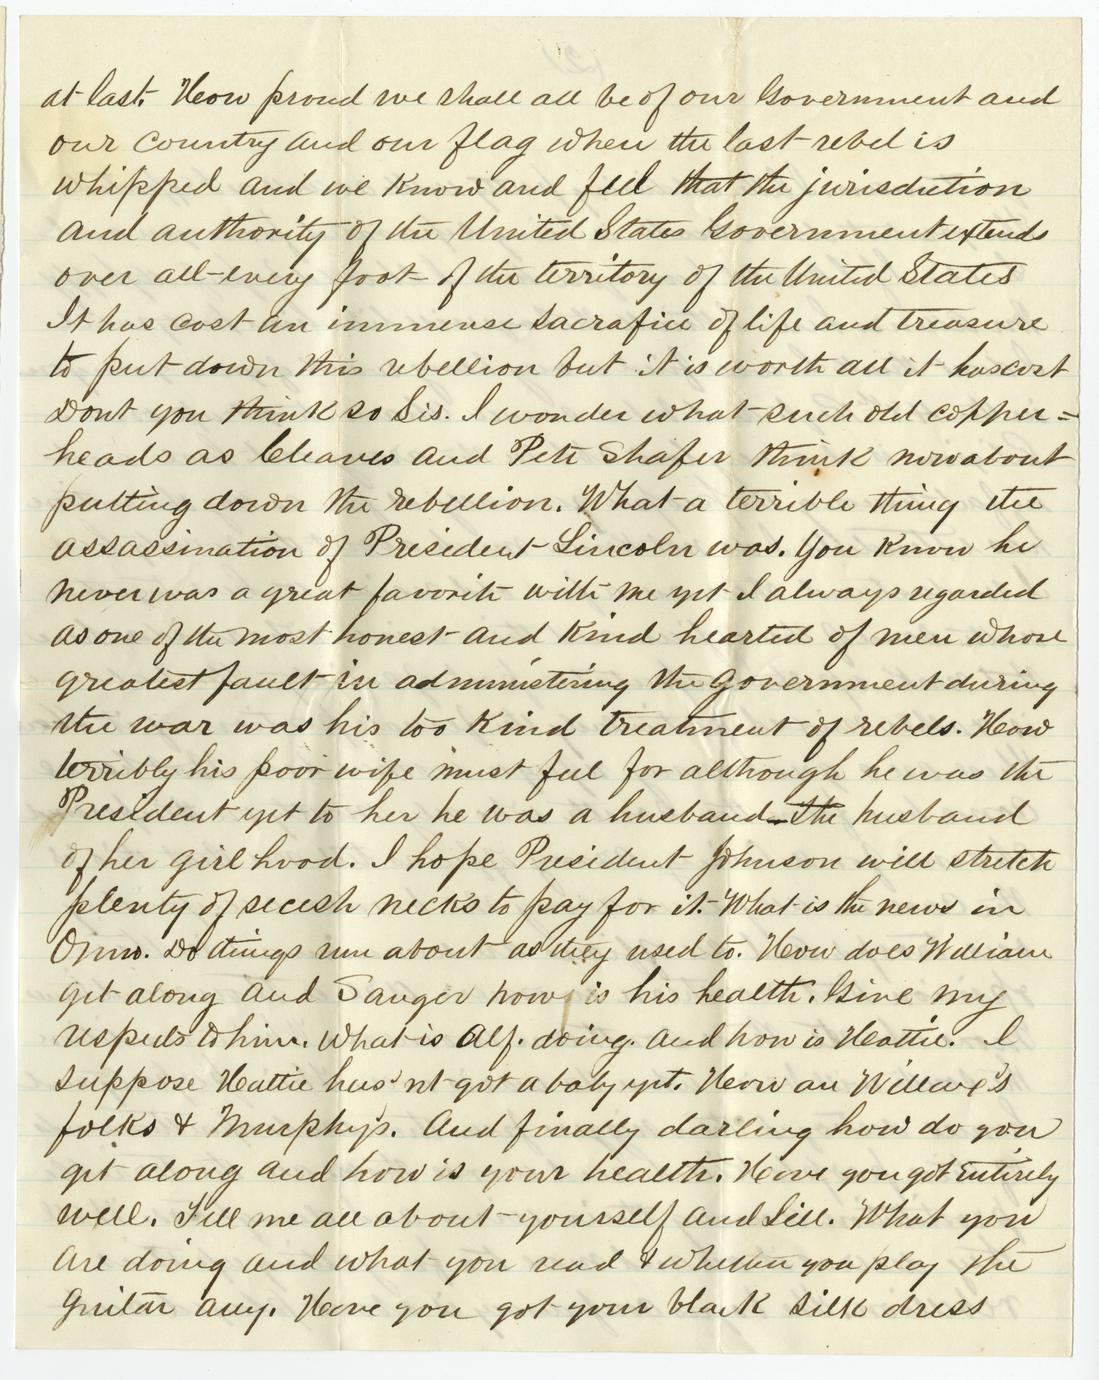 at last. How proud we shall all be of our Government and
our Country and our flag when the last rebel is
whipped and we know and feel that the jurisdiction
and authority of the United States Government extends
over all-every foot of the territory of the United States
It has cost an immense sacrafice of life and treasure
to put down this rebellion but it is worth all it has cost
Dont you think so Sis. I wonder what such old copper=
heads as Cleaves and Pete Shafer think now about
putting down the rebellion. What a terrible thing the
assassination of President Lincoln was. You know he
never was a great favorite with me yet I always regarded
as one of the most honest and kind hearted of men whose
greatest fault in administering the Government during
the war was his too kind treatment of rebels. How
terribly his poor wife must feel for although he was the
President yet to her he was a husband-the husband
of her girlhood. I hope President Johnson will stretch
plenty of secesh necks to pay for it. What is the news in
Onro. Do things run about as they used to. How does William
get along and Sanger how is his health. Give my
respects to him. What is Alf. doing. and how is Hattie. I
suppose Hattie has'nt got a baby yet. How are
folks & Murphy's. And finally darling how do you
get along and how is your health. Have you got entirely
well. Tell me all about yourself and Lill. What you
are doing and what you read & whether you play the
Guitar any. Have you got your black silk dress